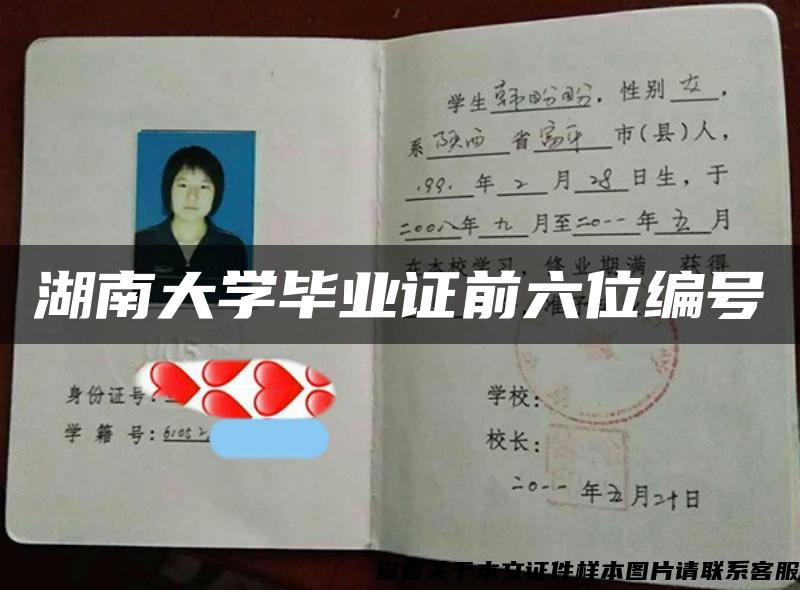 学生韩盼盼，性别女，
系陕西省富平市(县)人，
1991年2月28日生，于
二00八年九月至二0一一年五月
在本校学习，修业期满，获得
湖南大学毕业证前六位编号
身份证号：
学籍号：61052
学校：
校长：
二0一一年五月二十日
查看关于本文证件样本图片请联系客服